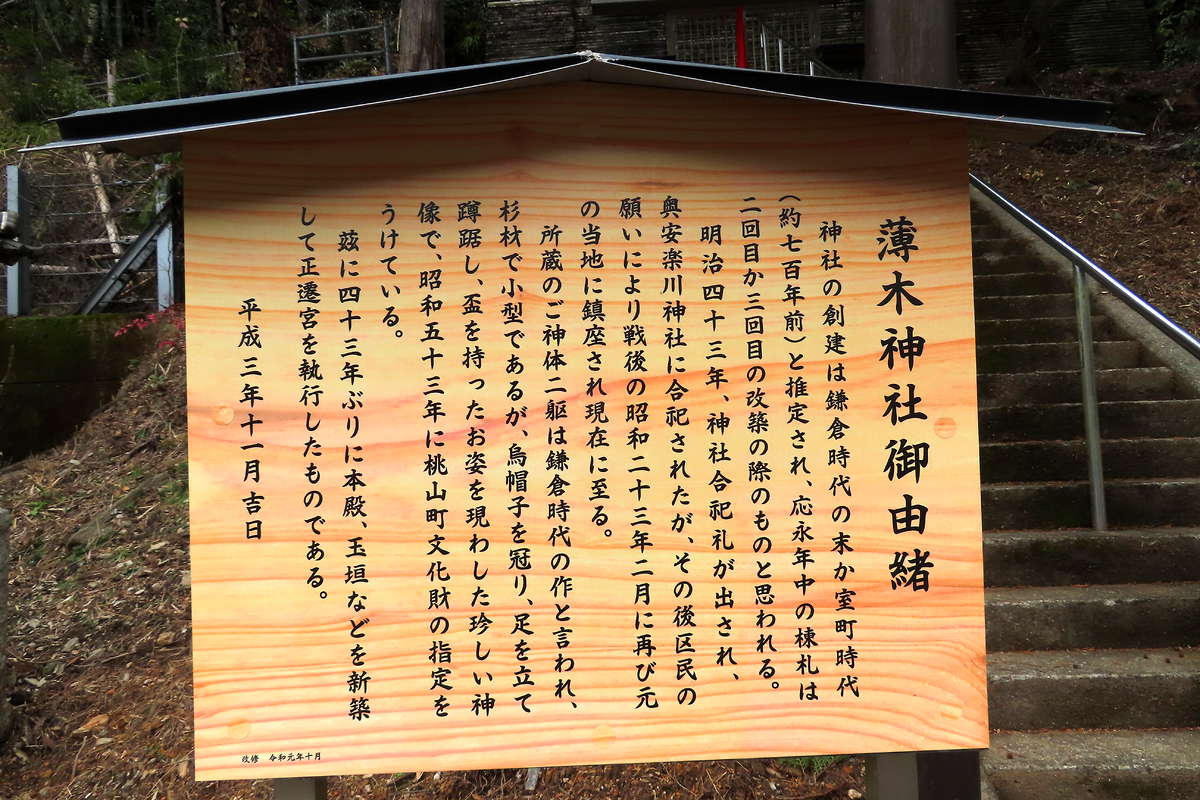 薄木神社御由緒
神社の創建は鎌倉時代の末か室町時代
(約七百年前)と推定され、応永年中の棟札は
二回目か三回目の改築の際のものと思われる。
明治四十三年、神社合祀礼が出され、
奥安楽川神社に合祀されたが、その後区民の
願いにより戦後の昭和二十三年二月に再び元
の当地に鎮座され現在に至る。
所蔵のご神体二躯は鎌倉時代の作と言われ、
杉材で小型であるが、烏帽子を冠り、足を立て
蹲踞し、盃を持ったお姿を現わした珍しい神
像で、昭和五十三年に桃山町文化財の指定を
うけている。
茲に四十三年ぶりに本殿、玉垣などを新築
して正遷宮を執行したものである。
平成三年十一月吉日
改修 令和元年十月